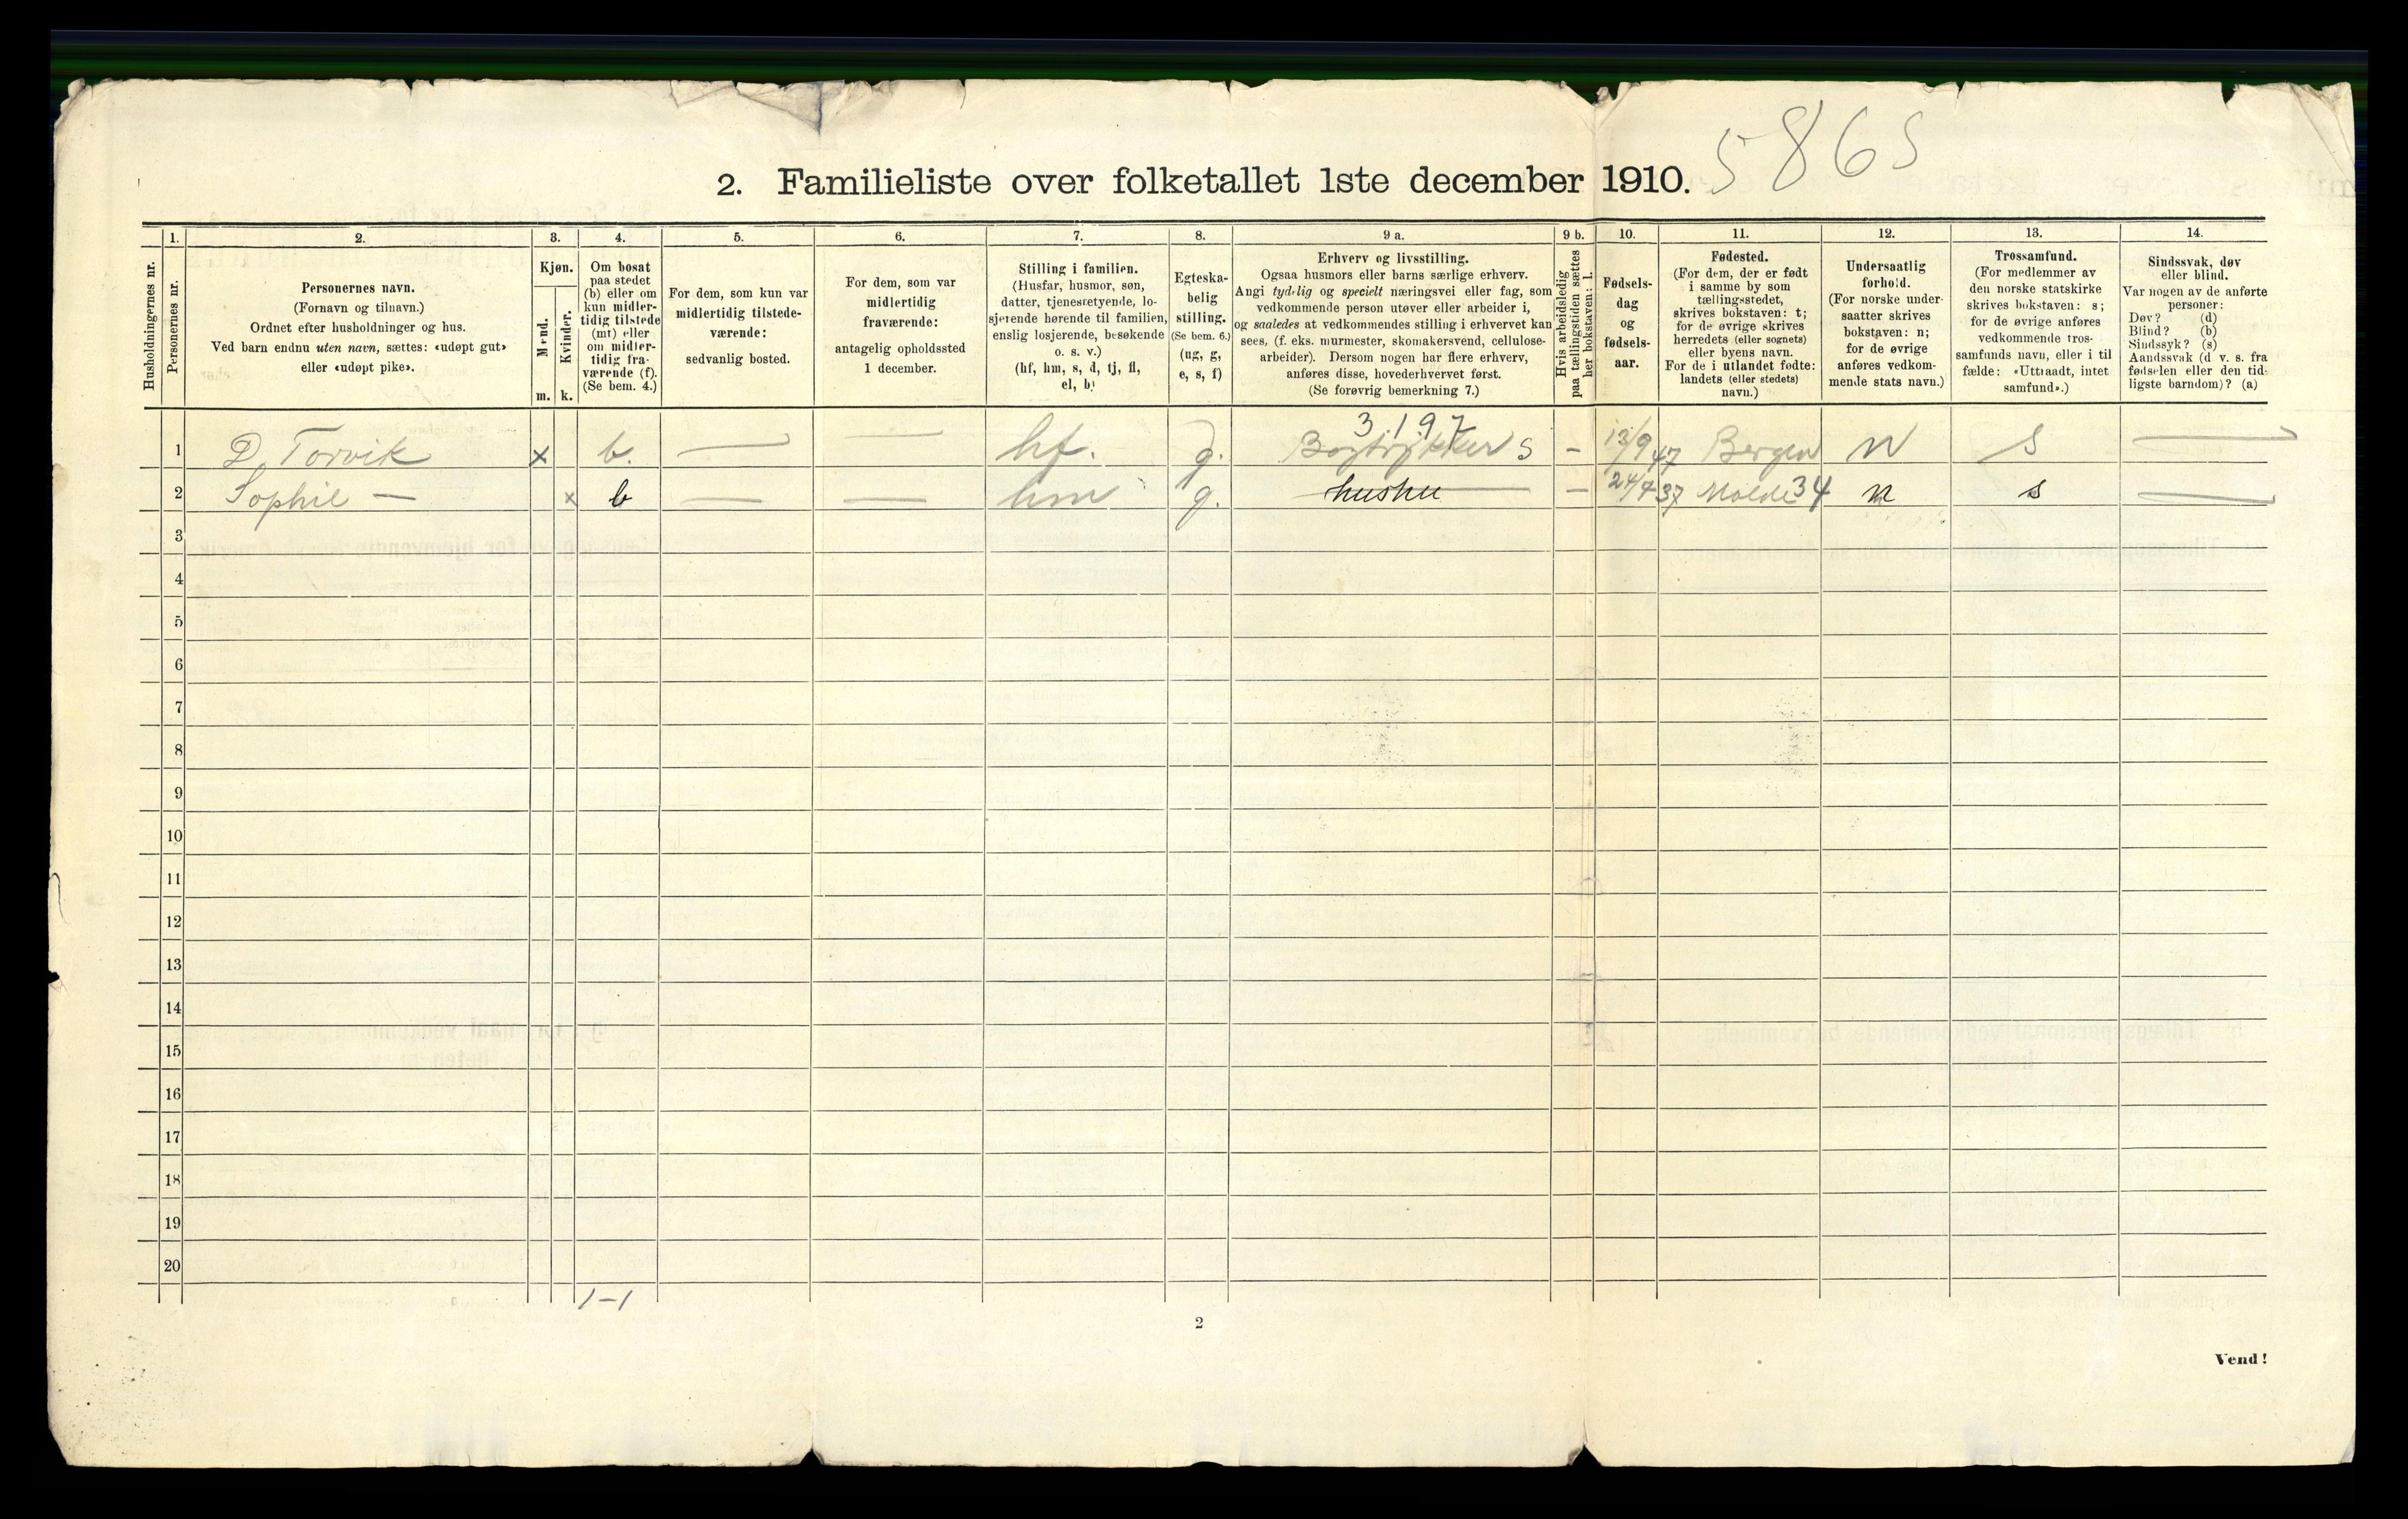 5865
2. Familieliste over folketallet 1ste december 1910.
Husholdningernes nr.
1.
Personernes nr.
2.
Personernes navn.
(Fornavn og tilnavn.)
Ordnet efter husholdninger og hus.
Ved barn endnu uten navn, sættes: «udøpt gut»
eller «udøpt pike».
3.
Kjøn.
Mænd.
m.
Kvinder.
k.
4.
Om bosat
paa stedet
(b) eller om
kun midler-
tidig tilstede
(mt) eller
om midler-
tidig fra-
værende (f).
(Se bem. 4.)
5.
For dem, som kun var
midlertidig tilstede-
værende:
sedvanlig bosted.
6.
For dem, som var
midlertidig
fraværende:
antagelig opholdssted
1 december.
7.
Stilling i familien.
(Husfar, husmor, søn,
datter, tjenestetyende, lo-
sjerende hørende til familien,
enslig losjerende, besøkende
o. s. v.)
(hf, hm, s, d, tj, fl,
el, b)
8.
Egteska-
belig
stilling.
(Se bem. 6.)
(ug, g,
e, s, f)
9 a.
Erhverv og livsstilling.
Ogsaa husmors eller barns særlige erhverv.
Angi tydelig og specielt næringsvei eller fag, som
vedkommende person utøver eller arbeider i,
og saaledes at vedkommendes stilling i erhvervet kan
sees, (f. eks. murmester, skomakersvend, cellulose-
arbeider). Dersom nogen har flere erhverv,
anføres disse, hovederhvervet først.
(Se forøvrig bemerkning 7.)
9 b.
Hvis arbeidsledig
paa tællingstiden sættes
her bokstaven: l.
10.
Fødsels-
dag
og
fødsels-
aar.
11.
Fødested.
(For dem, der er født
i samme by som
tællingsstedet,
skrives bokstaven: t;
for de øvrige skrives
herredets (eller sognets)
eller byens navn.
For de i utlandet fødte:
landets (eller stedets)
navn.)
12.
Undersaatlig
forhold.
(For norske under-
saatter skrives
bokstaven: n;
for de øvrige
anføres vedkom-
mende stats navn.)
13.
Trossamfund.
(For medlemmer av
den norske statskirke
skrives bokstaven: s;
for de øvrige anføres
vedkommende tros-
samfunds navn, eller i til
fælde: «Uttraadt, intet
samfund».)
14.
Sindssvak, døv
eller blind.
Var nogen av de anførte
personer:
Døv? (d)
Blind? (b)
Sindssyk? (s)
Aandssvak (d v. s. fra
fødselen eller den tid-
ligste barndom)? (a)
3.197
1 D. Torvik x b. — — hf. g. Bogtrykker s – 13/9 47 Bergen n s —
2 Sophie — x b — — hm g. hushu – 24/7 37 Molde 34 n s —
3
4
5
6
7
8
9
10
11
12
13
14
15
16
17
18
19
20
1–1
2
Vend!